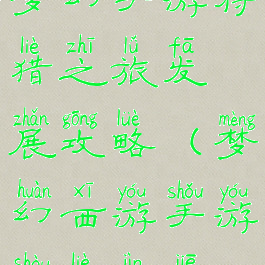 梦幻手游狩
liè zhī lǚ fā
猎之旅发
zhǎn gōng luè mèng
展攻略（梦
huàn xī yóu shǒu yóu
幻西游手游
shòu liè jìn jiē